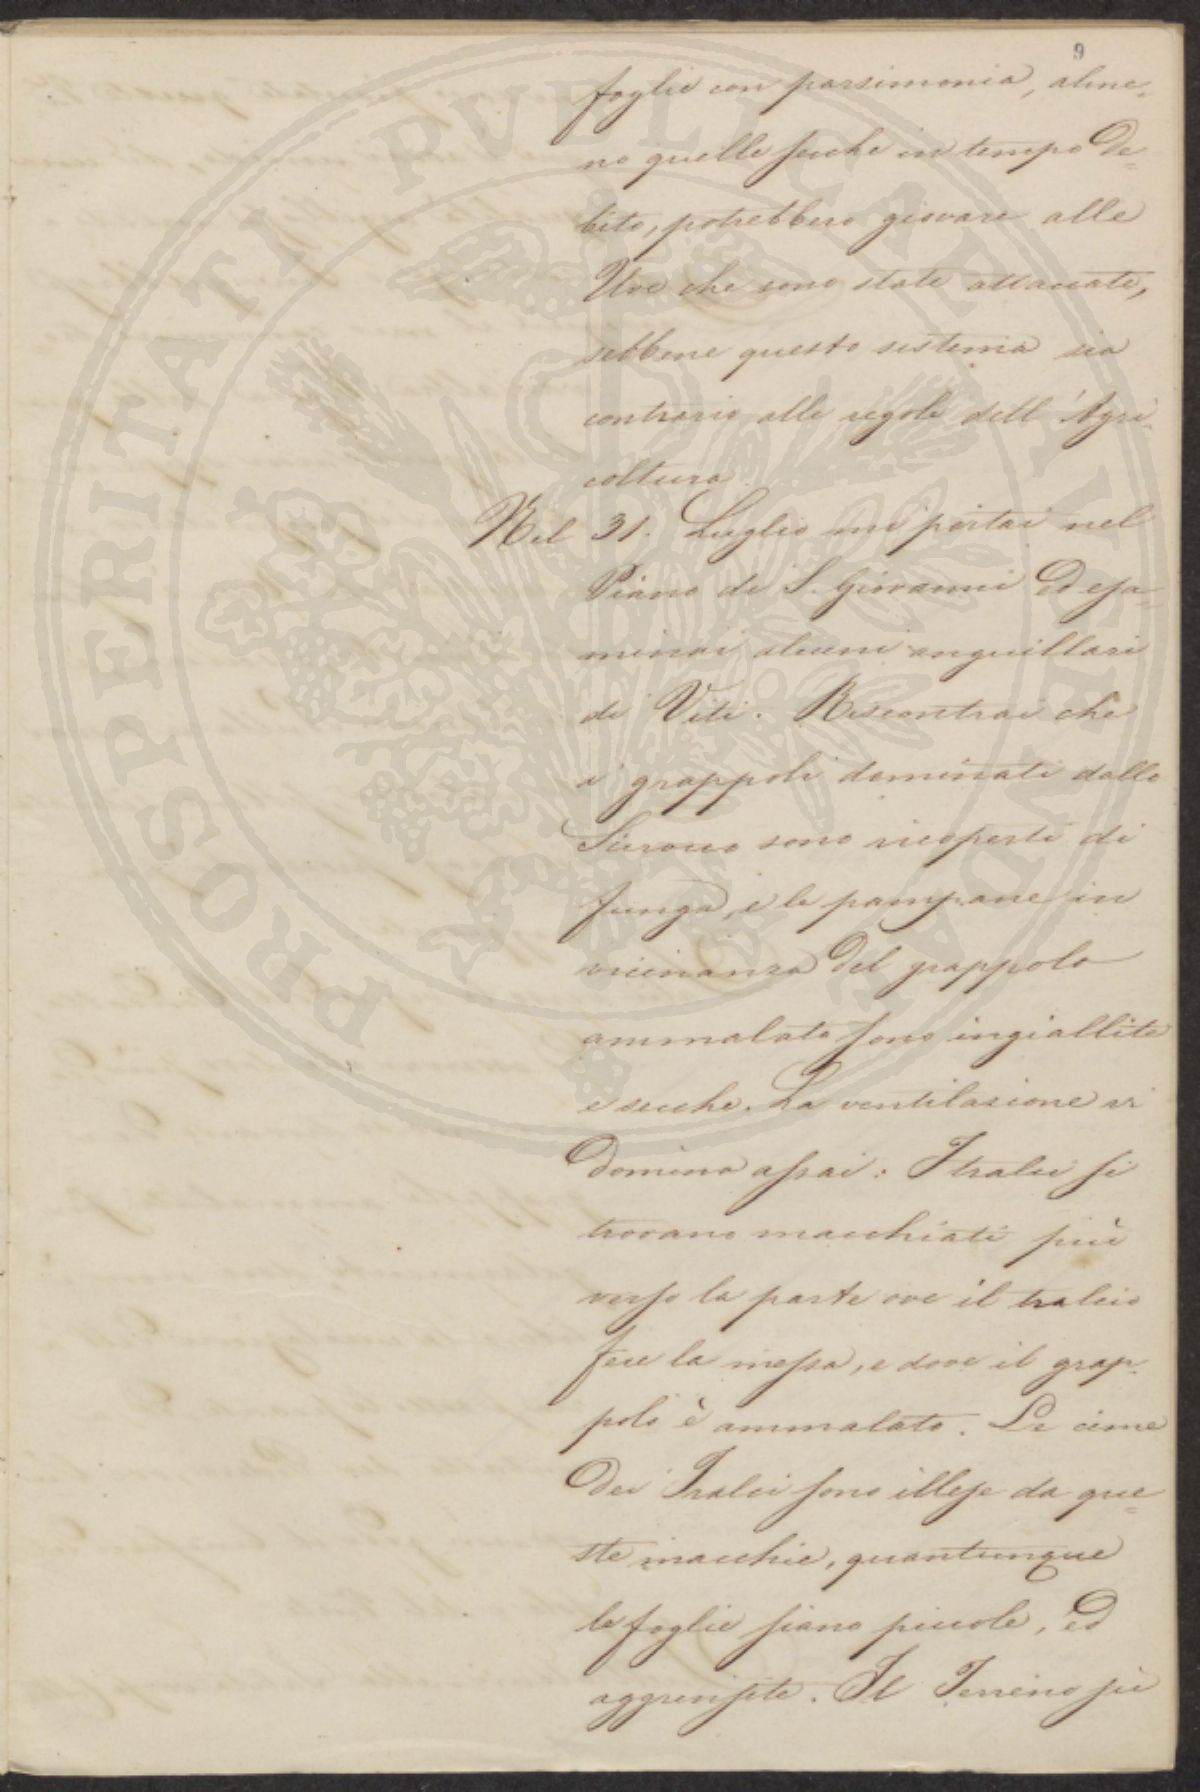 9
foglie con parsimonia, alme-
no quelle secche in tempo De=
bito, potrebbero giovare alle
Uve che sono state attaccate,
sebbene questo sistema sia
contrario alle regole dell'Agri-
coltura.
Nel 31. Luglio mi portai nel
Piano di S. Giovanni Ed esa=
minai alcuni anguillari
di Viti. Riscontrai che
i grappoli dominati dallo
Scirocco sono ricoperti di
funga, e le pampane in
vicinanza Del grappolo
ammalato sono ingiallite
e secche. La ventilazione vi
Domina assai: I tralci si
trovano macchiati più
verso la parte ove il tralcio
fece la messa, e dove il grap-
polo è ammalato. Le cime
Dei Tralci sono illese da que=
ste macchie, quantunque
le foglie siano piccole, ed
aggrinsite. Il Terreno si è
PROSPERITATI PVBLICAE AVGENDAE